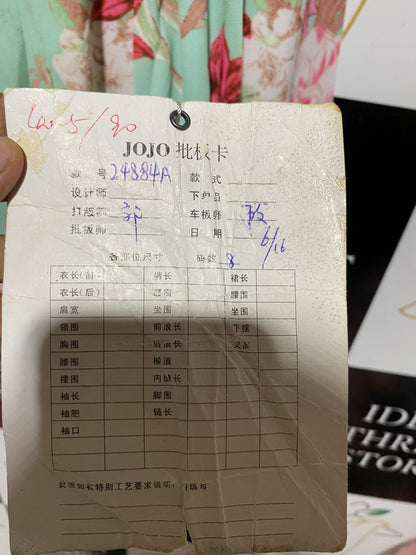 JOJO 批板卡
款 号 24884A 款 式
设计师 下单员
打版师 郭 车板师
批版师 日 期 6/16
各部位尺寸 码数 8
衣长(前) 裤长 裙长
衣长(后) 腰围 腰围
肩宽 坐围 坐围
领围 前浪长 下摆
胸围 后浪长
腰围 横浪
摆围 内长
袖长 脚围
袖肥 链长
袖口
特别工艺要求说明
IDE
THR
STOR